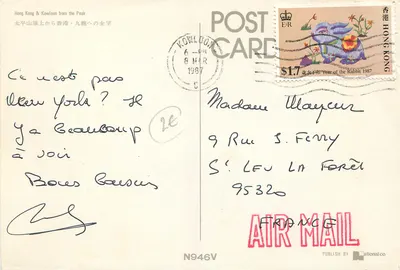 Hong Kong & Kowloon from the Peak
太平山頂上から香港・九龍への台望
POST
CARD
KOWLOON
8 MAR
1987
香港 HONG KONG
E II R
$1.7
Year of the Rabbit 1987
Ce n'est pas
New York? Il
y a beaucoup
à voir
Bons baisers
2€
Madame Mayeur
9 Rue S. Ferry
St LEU LA FORÊT
95320
FRANCE
AIR MAIL
N946V